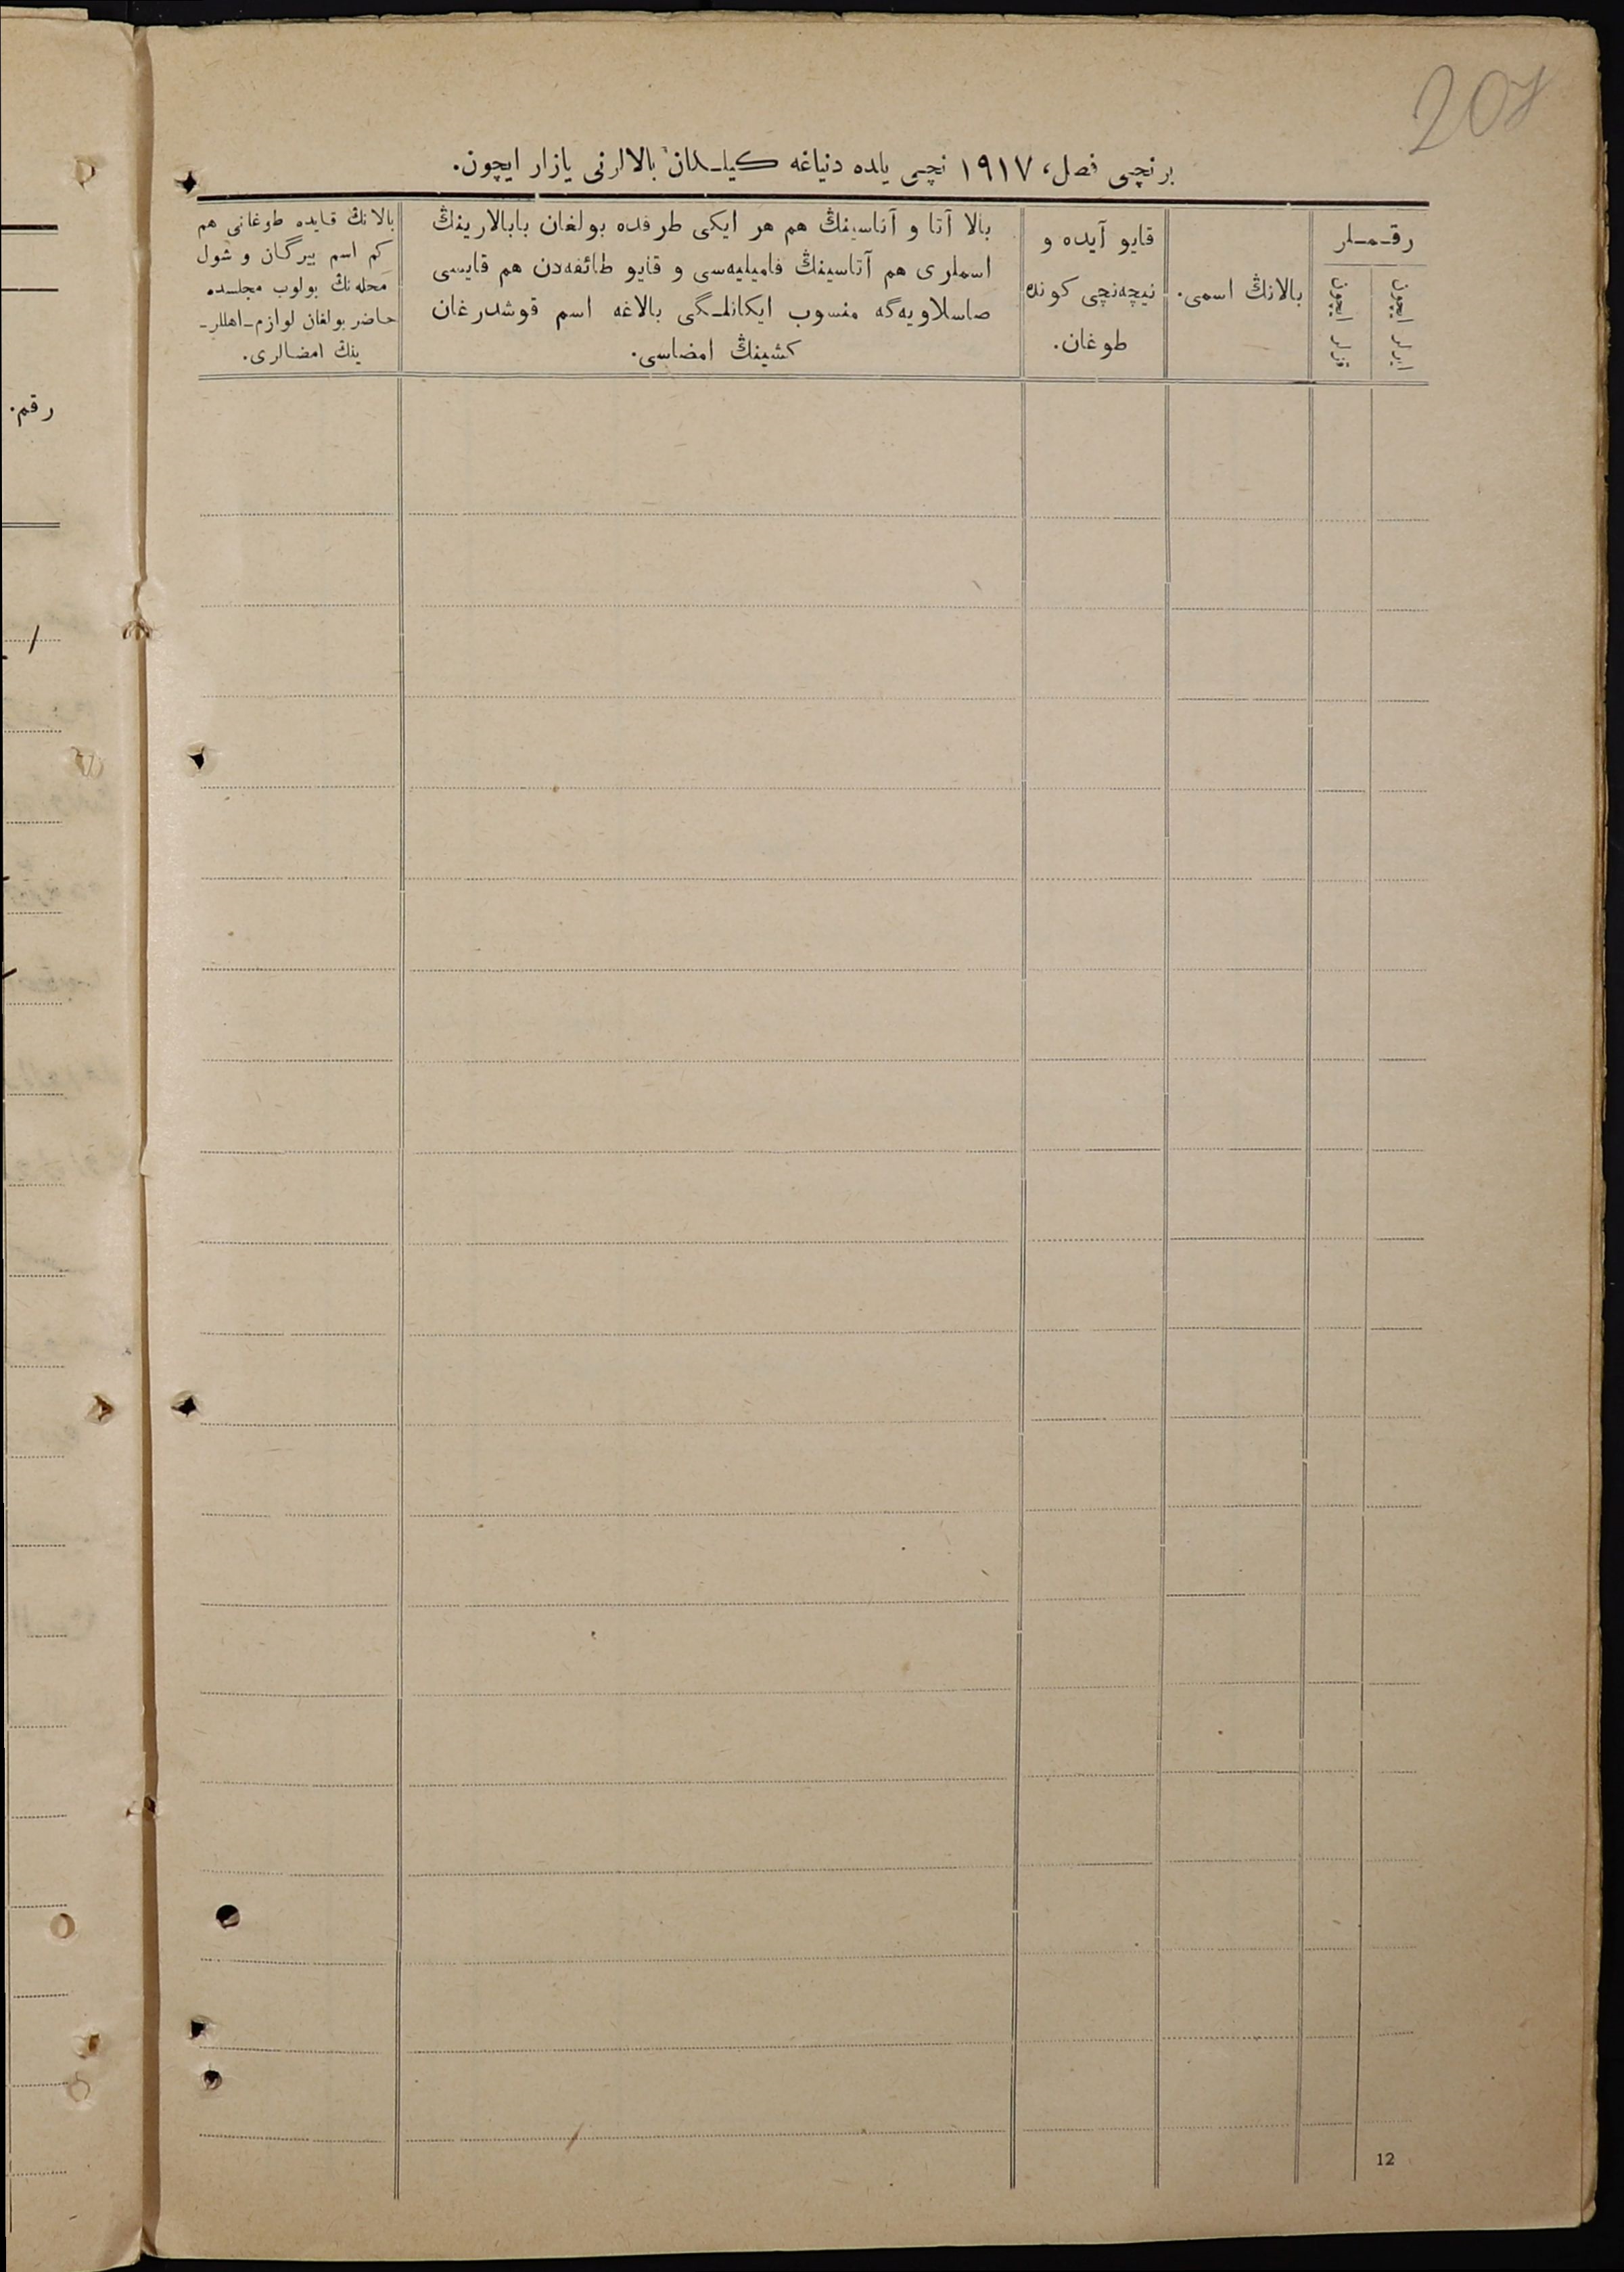 207
برنچی فصل، ١٩١٧ نچی یلده دنیاغه کیلـگان بالالارنی یازار ایچون.
رقـمـلر
ایرلر ایچون
قزلر ایچون
بالانڭ اسمی.
قایو آیده و
نیچه‌نچی کونده
طوغان.
بالا آتا و آناسینڭ هم هر ایکی طرفده بولغان بابالارینڭ
اسملری هم آتاسینڭ فامیلیه‌سی و قایو طائفه‌دن هم قایسی
صاسلاویه‌گه منسوب ایکانلـگی بالاغه اسم قوشدرغان
کشینڭ امضاسی.
بالانڭ قایده طوغانی هم
کم اسم بیرگان و شول
محله‌نڭ بولوب مجلـسده
حاضر بولغان لوازم‌ـ‌اهللرـ
ینڭ امضالری.
رقم.
12